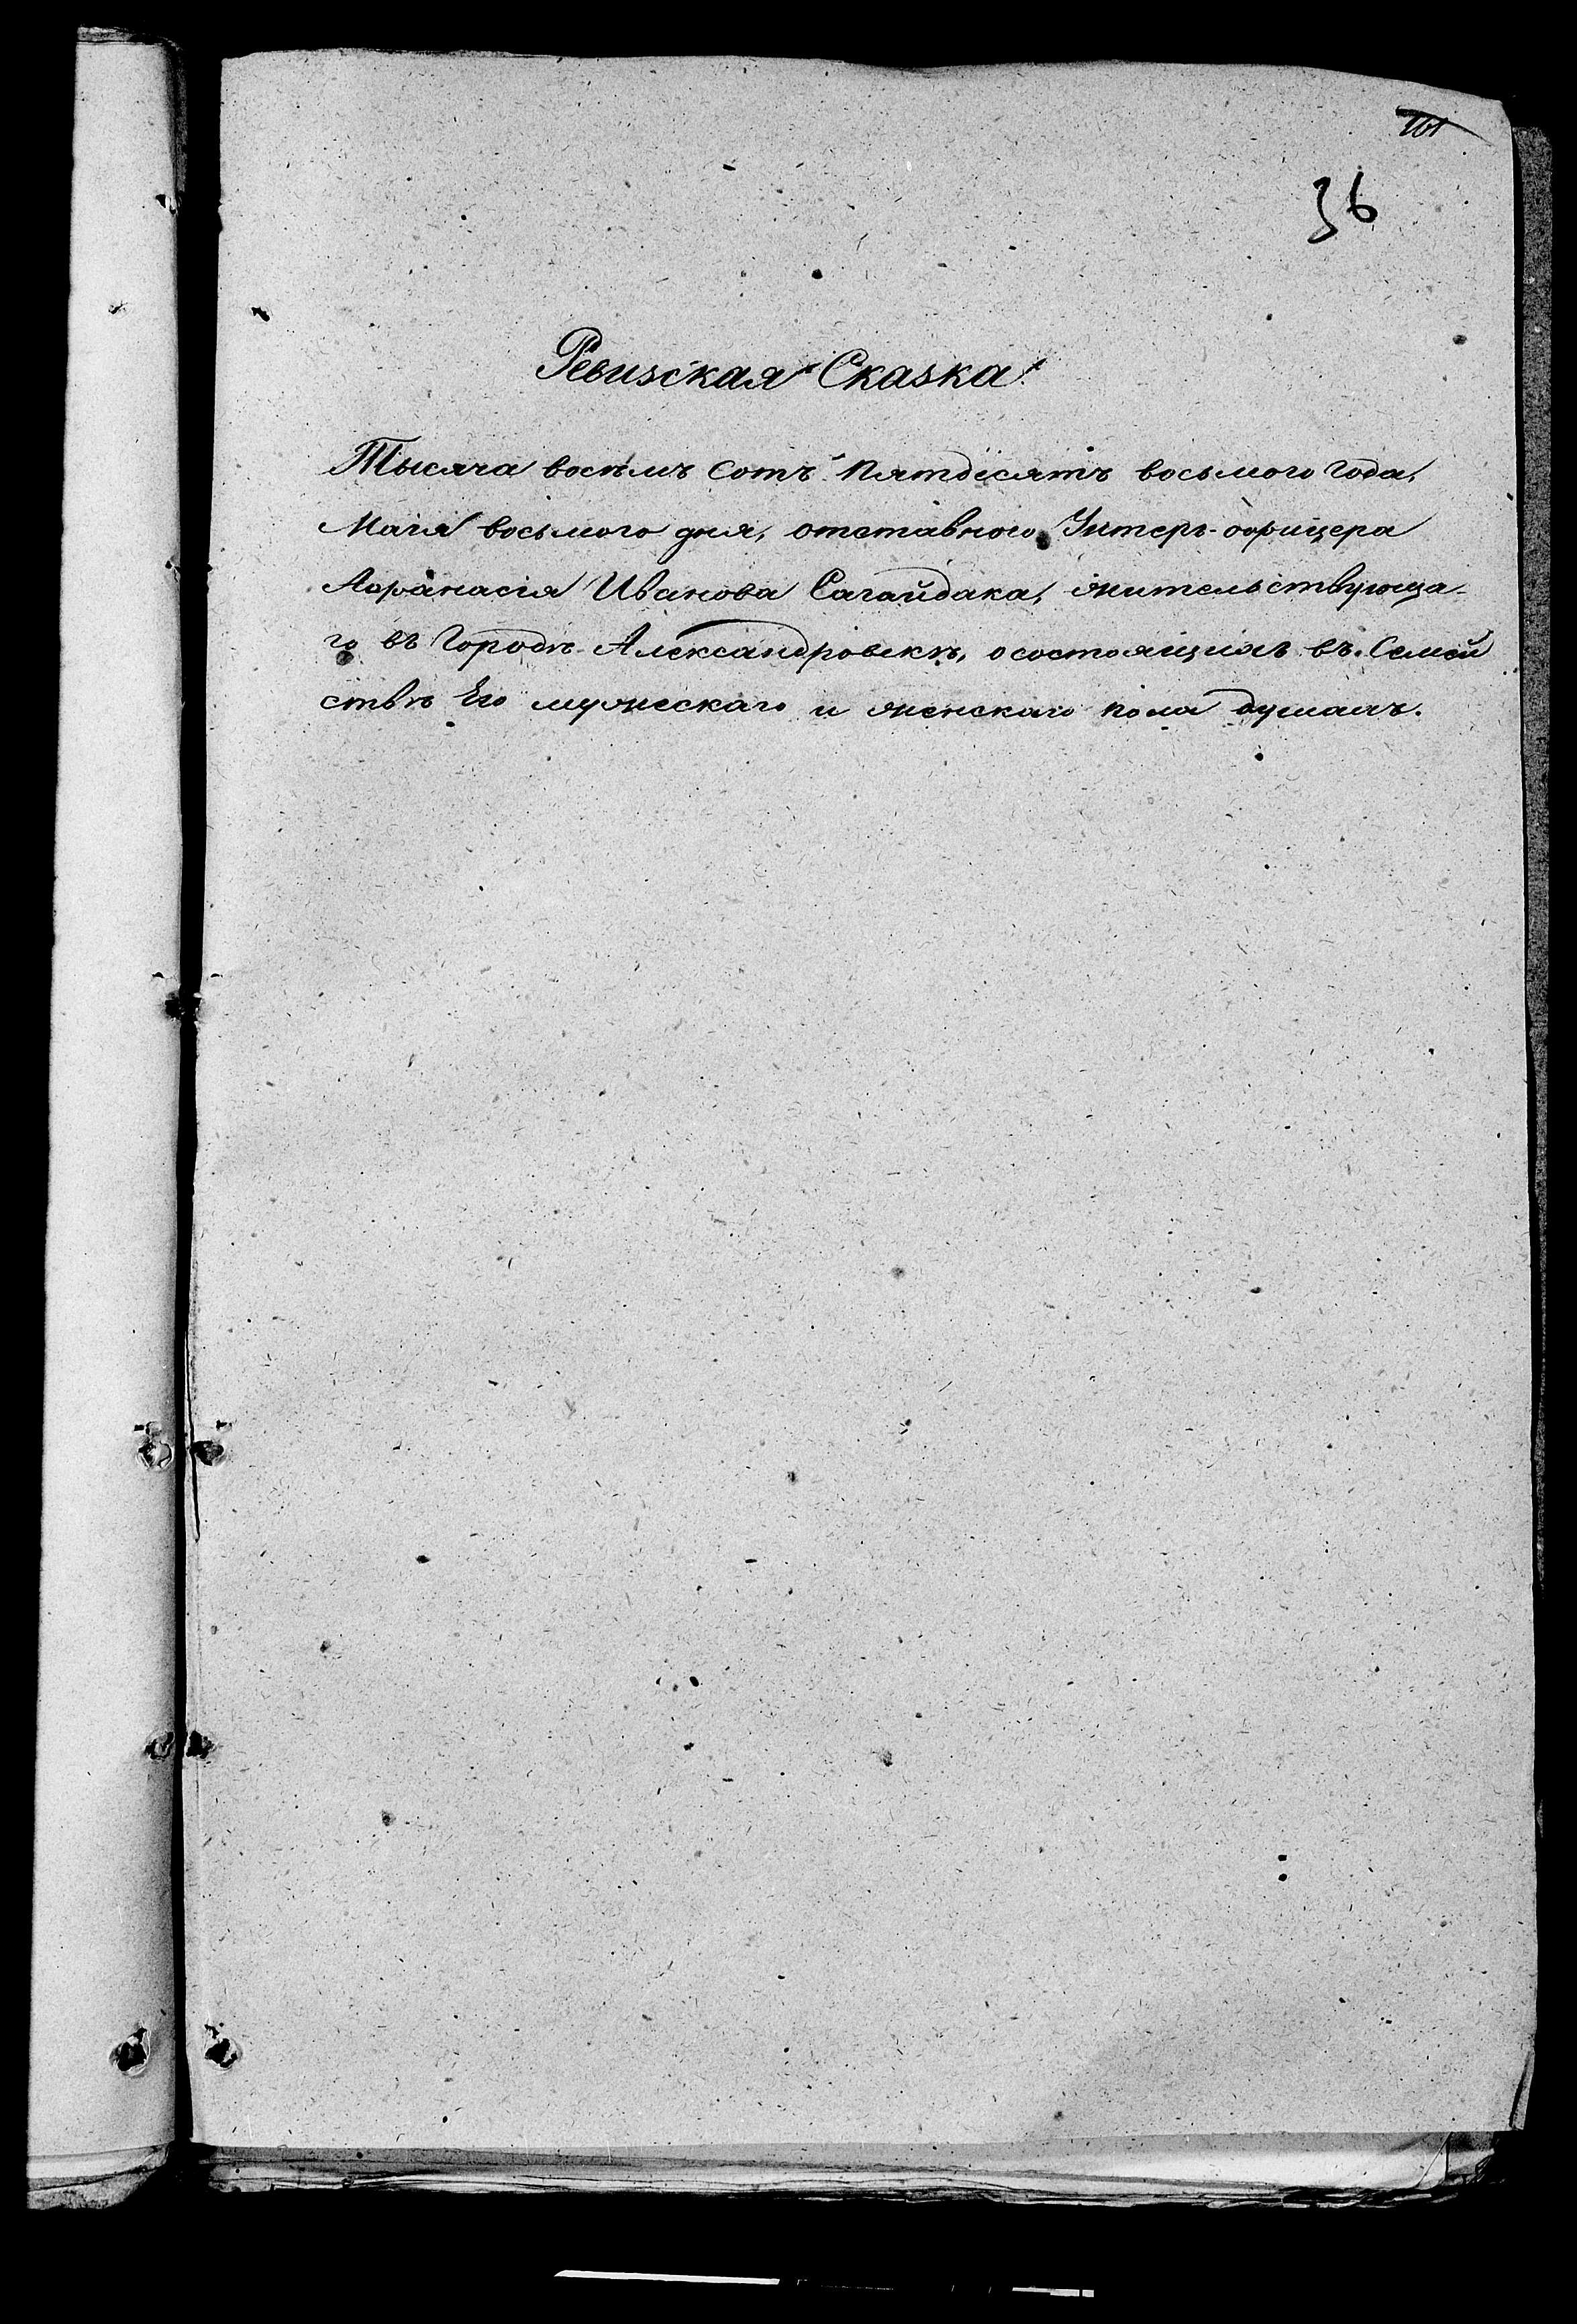 101
36
Ревизская Сказка
Тысяча восѣмъ сотъ пятдесятъ восьмого года,
Маія восьмого дня, отставного Унтеръ-офицера
Афанасія Иванова Сагайдака, жительствующа-
го въ Городѣ Александровскѣ, о состоящихъ въ Семей
ствѣ Его мужескаго и женскаго пола душахъ.